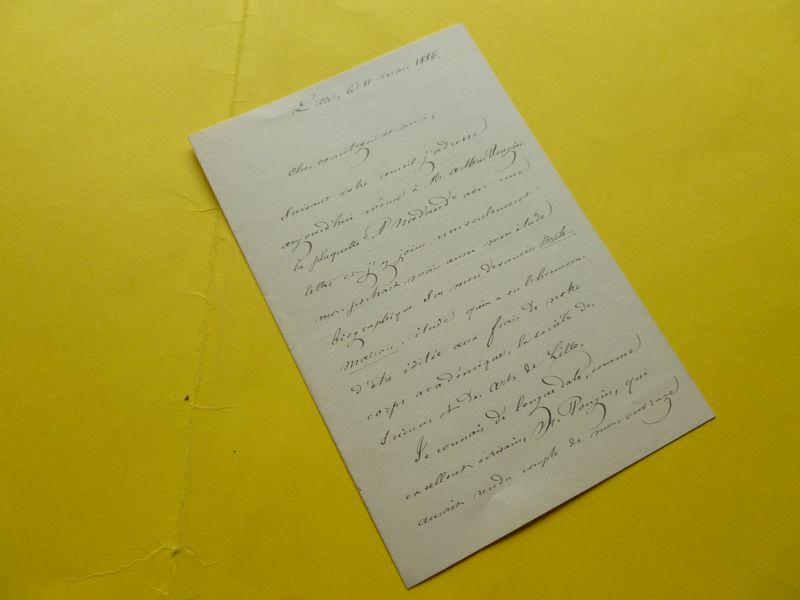 Lille, le 11 mai 1886.
Cher compatriote et ami,
Suivant votre conseil j'adresse
aujourd'hui même à M. Arthur Pougin
la plaquette à Nadaud avec une
lettre et j'y joins non seulement
mon portrait, mais aussi mon étude
biographique sur mon devancier
maison, étude qui a eu l'honneur
d'être éditée aux frais de notre
corps académique, la société des
Sciences et des Arts de Lille.
Je connais de longue date, comme
excellent écrivain, M. Pougin, qui
aurait rendu compte de mon ouvrage